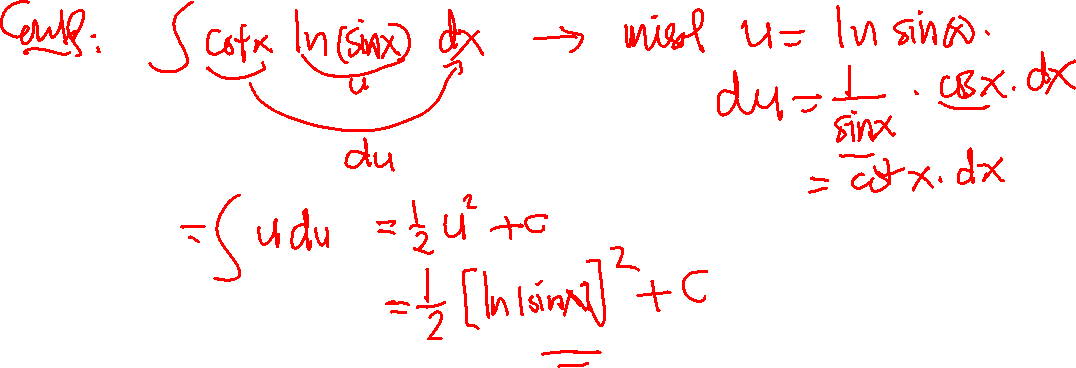 Contoh: ∫ cotx ln(sinx) dx → misal u = ln sin(x).
u
du
du = 1/sinx . cosx. dx
= cot x. dx
= ∫ u du = 1/2 u² + C
= 1/2 [ln|sinx|]² + C